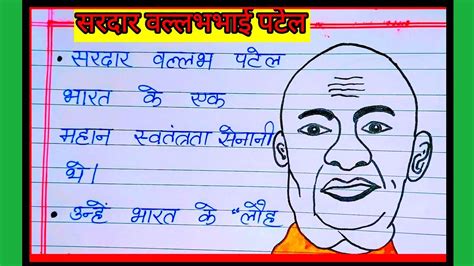 सरदार वल्लभभाई पटेल
• सरदार वल्लभ पटेल
भारत के एक
महान स्वतंत्रता सेनानी
थे।
• उन्हें भारत के "लौह